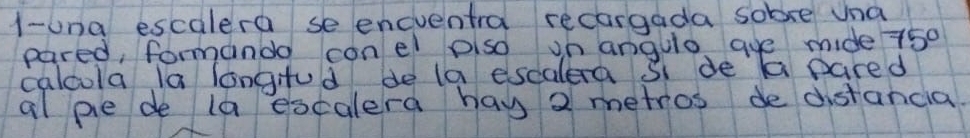 1-una escalera se encuentra recargada sobre una
pared, formando con el piso un angulo que mide 75°
calcula la longitud de la escalera si de la pared
al pie de la escalera hay 2 metros de distancia.